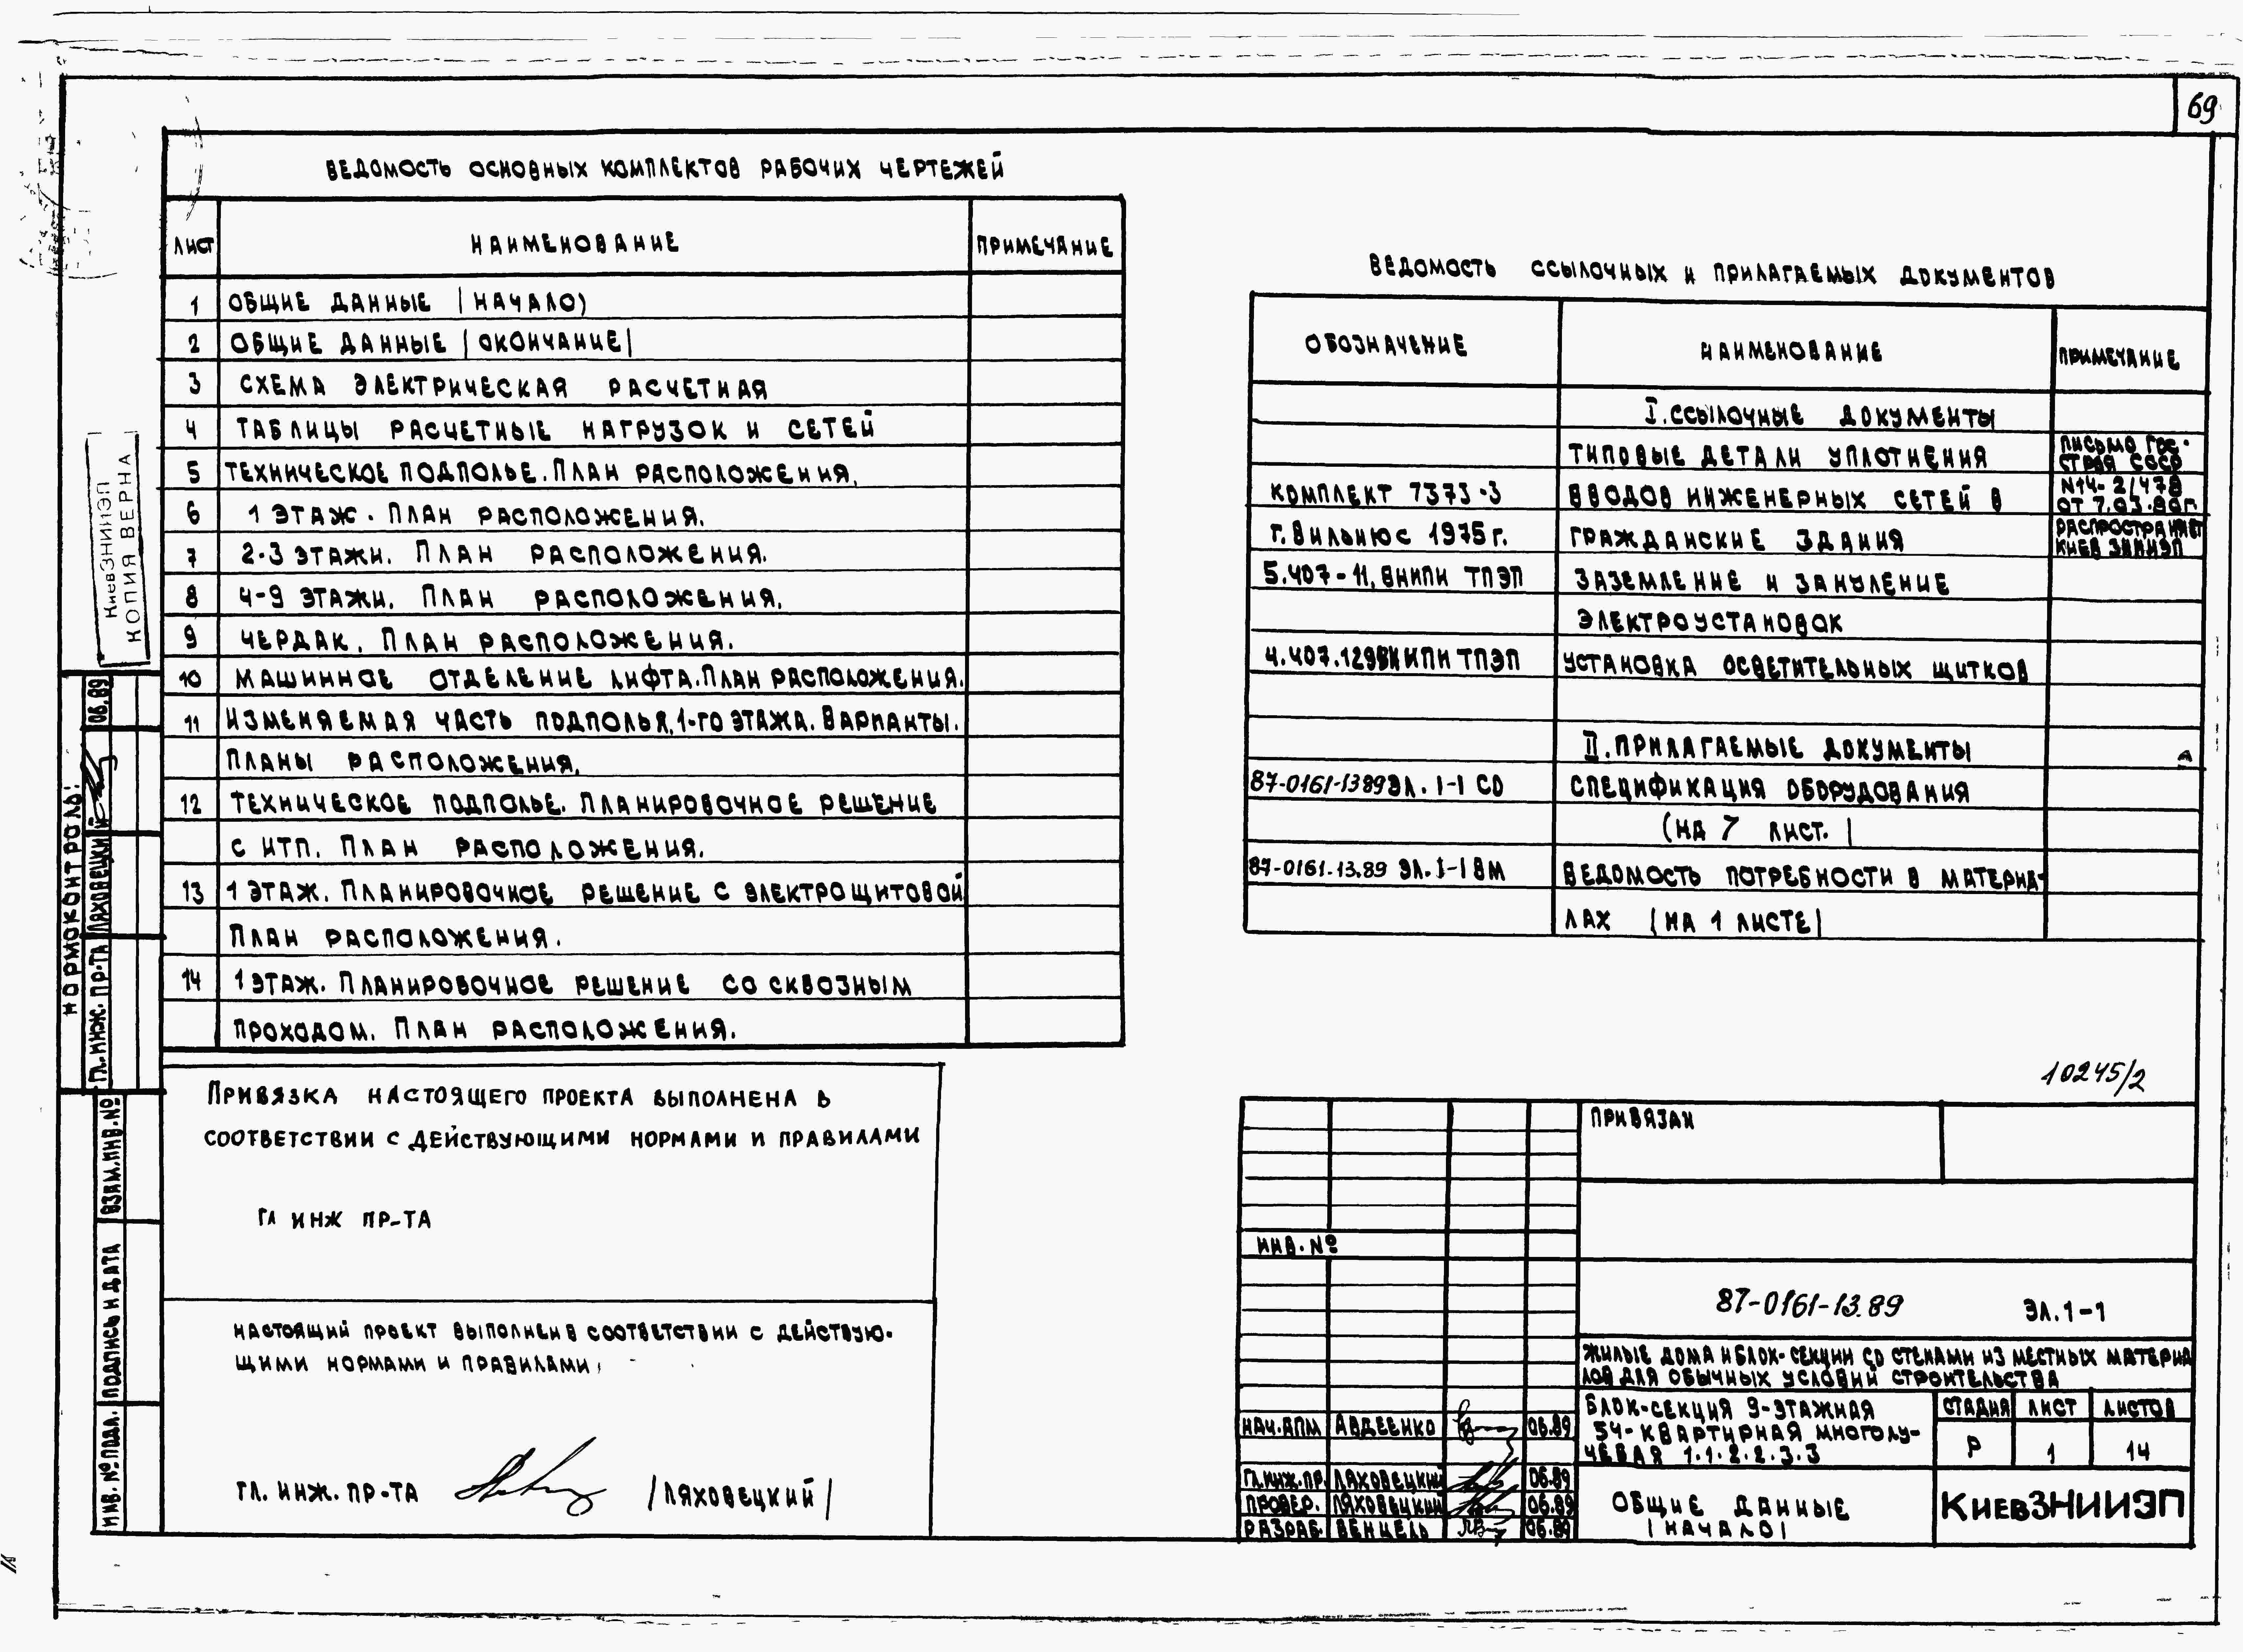 69
ВЕДОМОСТЬ ОСНОВНЫХ КОМПЛЕКТОВ РАБОЧИХ ЧЕРТЕЖЕЙ
ЛИСТ НАИМЕНОВАНИЕ ПРИМЕЧАНИЕ
1 ОБЩИЕ ДАННЫЕ (НАЧАЛО)
2 ОБЩИЕ ДАННЫЕ (ОКОНЧАНИЕ)
3 СХЕМА ЭЛЕКТРИЧЕСКАЯ РАСЧЕТНАЯ
4 ТАБЛИЦЫ РАСЧЕТНЫЕ НАГРУЗОК И СЕТЕЙ
5 ТЕХНИЧЕСКОЕ ПОДПОЛЬЕ. ПЛАН РАСПОЛОЖЕНИЯ.
6 1 ЭТАЖ. ПЛАН РАСПОЛОЖЕНИЯ.
7 2-3 ЭТАЖИ. ПЛАН РАСПОЛОЖЕНИЯ.
8 4-9 ЭТАЖИ. ПЛАН РАСПОЛОЖЕНИЯ.
9 ЧЕРДАК. ПЛАН РАСПОЛОЖЕНИЯ.
10 МАШИННОЕ ОТДЕЛЕНИЕ ЛИФТА. ПЛАН РАСПОЛОЖЕНИЯ.
11 ИЗМЕНЯЕМАЯ ЧАСТЬ ПОДПОЛЬЯ, 1-ГО ЭТАЖА. ВАРИАНТЫ.
ПЛАНЫ РАСПОЛОЖЕНИЯ.
12 ТЕХНИЧЕСКОЕ ПОДПОЛЬЕ. ПЛАНИРОВОЧНОЕ РЕШЕНИЕ
С ИТП. ПЛАН РАСПОЛОЖЕНИЯ.
13 1 ЭТАЖ. ПЛАНИРОВОЧНОЕ РЕШЕНИЕ С ЭЛЕКТРОЩИТОВОЙ
ПЛАН РАСПОЛОЖЕНИЯ.
14 1 ЭТАЖ. ПЛАНИРОВОЧНОЕ РЕШЕНИЕ СО СКВОЗНЫМ
ПРОХОДОМ. ПЛАН РАСПОЛОЖЕНИЯ.
ВЕДОМОСТЬ ССЫЛОЧНЫХ И ПРИЛАГАЕМЫХ ДОКУМЕНТОВ
ОБОЗНАЧЕНИЕ НАИМЕНОВАНИЕ ПРИМЕЧАНИЕ
I. ССЫЛОЧНЫЕ ДОКУМЕНТЫ
КОМПЛЕКТ 7373-3
г. Вильнюс 1975 г.
ТИПОВЫЕ ДЕТАЛИ УПЛОТНЕНИЯ
ВВОДОВ ИНЖЕНЕРНЫХ СЕТЕЙ В
ГРАЖДАНСКИЕ ЗДАНИЯ
ПИСЬМО ГОС-
СТРОЯ СССР
N14-2/478
ОТ 7.03.80Г.
РАСПРОСТРАНЯЕТ
КИЕВ ЗНИИЭП
5.407-11, ВНИПИ ТПЭП ЗАЗЕМЛЕНИЕ И ЗАНУЛЕНИЕ
ЭЛЕКТРОУСТАНОВОК
4.407.129 ВНИПИ ТПЭП УСТАНОВКА ОСВЕТИТЕЛЬНЫХ ЩИТКОВ
II. ПРИЛАГАЕМЫЕ ДОКУМЕНТЫ
87-0161-13 89 ЭЛ. 1-1 СО СПЕЦИФИКАЦИЯ ОБОРУДОВАНИЯ
(НА 7 ЛИСТ.)
87-0161.13.89 ЭЛ. 1-1 ВМ ВЕДОМОСТЬ ПОТРЕБНОСТИ В МАТЕРИА-
ЛАХ (НА 1 ЛИСТЕ)
КиевЗНИИЭП
КОПИЯ ВЕРНА
НОРМОКОНТРОЛЬ:
ГЛ. ИНЖ. ПР-ТА ЛЯХОВЕЦКИЙ 06.89
ВЗАМ. ИНВ. №
ПОДПИСЬ И ДАТА
ИНВ. № ПОДЛ.
ПРИВЯЗКА НАСТОЯЩЕГО ПРОЕКТА ВЫПОЛНЕНА В
СООТВЕТСТВИИ С ДЕЙСТВУЮЩИМИ НОРМАМИ И ПРАВИЛАМИ
ГЛ ИНЖ ПР-ТА
НАСТОЯЩИЙ ПРОЕКТ ВЫПОЛНЕН В СООТВЕТСТВИИ С ДЕЙСТВУЮ-
ЩИМИ НОРМАМИ И ПРАВИЛАМИ.
ГЛ. ИНЖ. ПР-ТА /ЛЯХОВЕЦКИЙ/
10245/2
ПРИВЯЗАН
ИНВ. №
87-0161-13.89 ЭЛ. 1-1
ЖИЛЫЕ ДОМА И БЛОК-СЕКЦИИ СО СТЕНАМИ ИЗ МЕСТНЫХ МАТЕРИА
ЛОВ ДЛЯ ОБЫЧНЫХ УСЛОВИЙ СТРОИТЕЛЬСТВА
БЛОК-СЕКЦИЯ 9-ЭТАЖНАЯ
54-КВАРТИРНАЯ МНОГОЛУ-
ЧЕВАЯ 1.1.2.2.3.3
СТАДИЯ ЛИСТ ЛИСТОВ
Р 1 14
НАЧ. АПМ АВДЕЕНКО 06.89
ГЛ. ИНЖ. ПР. ЛЯХОВЕЦКИЙ 06.89
ПРОВЕР. ЛЯХОВЕЦКИЙ 06.89
РАЗРАБ. ВЕНЦЕЛЬ 06.89
ОБЩИЕ ДАННЫЕ
(НАЧАЛО)
КИЕВЗНИИЭП